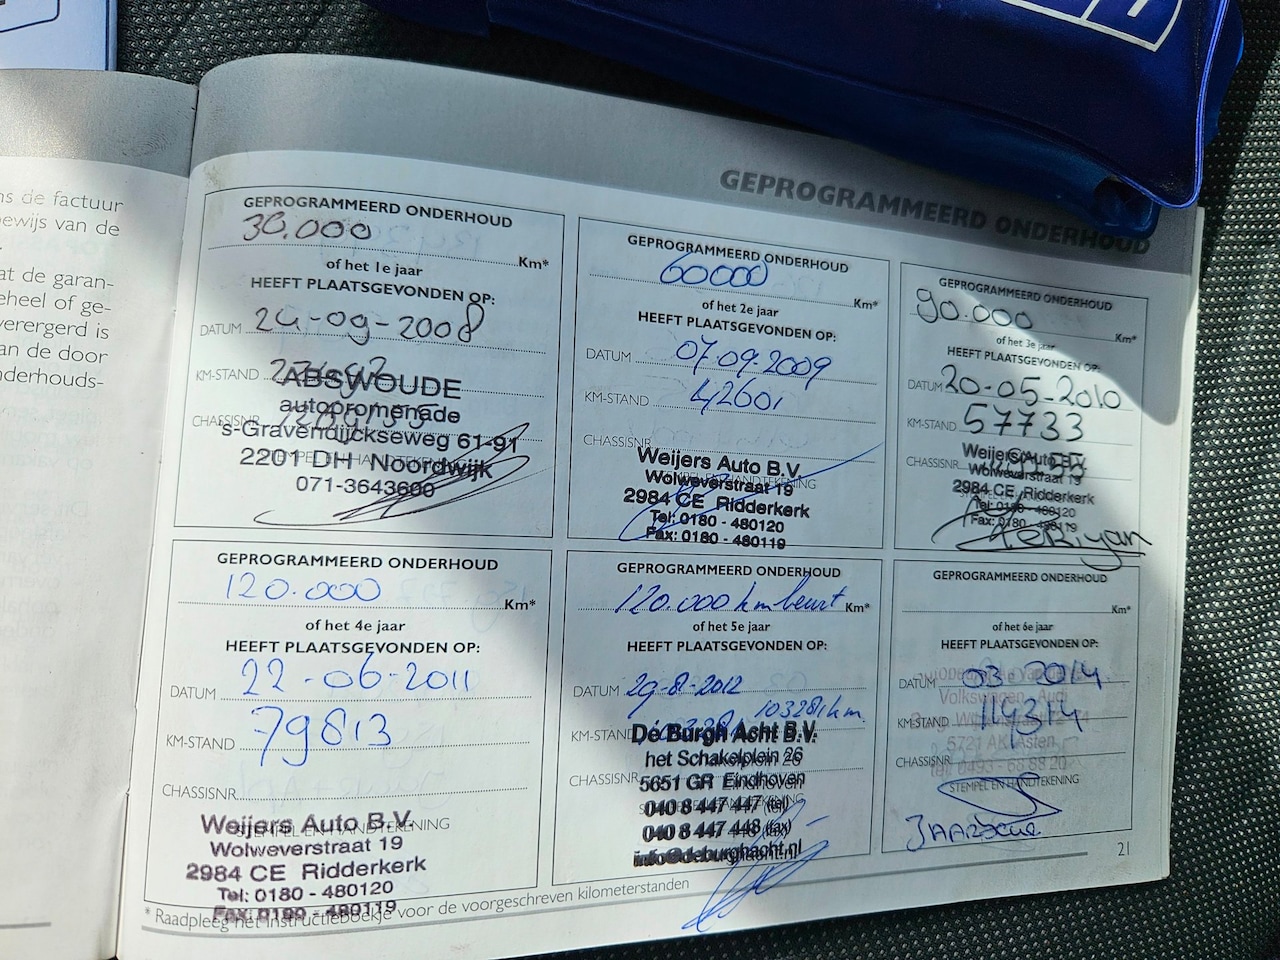 ns de factuur
ewijs van de
at de garan-
eheel of ge-
verergerd is
an de door
nderhouds-
GEPROGRAMMEERD ONDERHOUD
GEPROGRAMMEERD ONDERHOUD
30.000
Km*
of het 1e jaar
HEEFT PLAATSGEVONDEN OP:
DATUM 24-09-2008
KM-STAND
ABSWOUDE
autopromenade
CHASSISNR.
's-Gravendijckseweg 61-91
2201 DH Noordwijk
071-3643600
GEPROGRAMMEERD ONDERHOUD
60000
Km*
of het 2e jaar
HEEFT PLAATSGEVONDEN OP:
DATUM 07.09.2009
KM-STAND 42601
CHASSISNR.
Weijers Auto B.V.
Wolweverstraat 19
2984 CE Ridderkerk
Tel: 0180 - 480120
Fax: 0180 - 480119
GEPROGRAMMEERD ONDERHOUD
90.000
Km*
of het 3e jaar
HEEFT PLAATSGEVONDEN OP:
DATUM 20-05-2010
KM-STAND 57733
CHASSISNR.
Weijers Auto B.V.
Wolweverstraat 19
2984 CE Ridderkerk
Tel: 0180 - 480120
Fax: 0180 - 480119
GEPROGRAMMEERD ONDERHOUD
120.000
Km*
of het 4e jaar
HEEFT PLAATSGEVONDEN OP:
DATUM 22-06-2011
KM-STAND 79813
CHASSISNR.
STEMPEL EN HANDTEKENING
Weijers Auto B.V.
Wolweverstraat 19
2984 CE Ridderkerk
Tel: 0180 - 480120
Fax: 0180 - 480119
GEPROGRAMMEERD ONDERHOUD
120.000 km beurt Km*
of het 5e jaar
HEEFT PLAATSGEVONDEN OP:
DATUM 29-8-2012
103281 km.
KM-STAND
De Burgh Acht B.V.
het Schakelplein 26
CHASSISNR.
5651 GR Eindhoven
040 8 447 447 (tel)
040 8 447 448 (fax)
info@deburghacht.nl
GEPROGRAMMEERD ONDERHOUD
Km*
of het 6e jaar
HEEFT PLAATSGEVONDEN OP:
DATUM 03-2014
Volkswagen - Audi
KM-STAND 114314
5721 AK Asten
CHASSISNR.
STEMPEL EN HANDTEKENING
* Raadpleeg het instructieboekje voor de voorgeschreven kilometerstanden
21